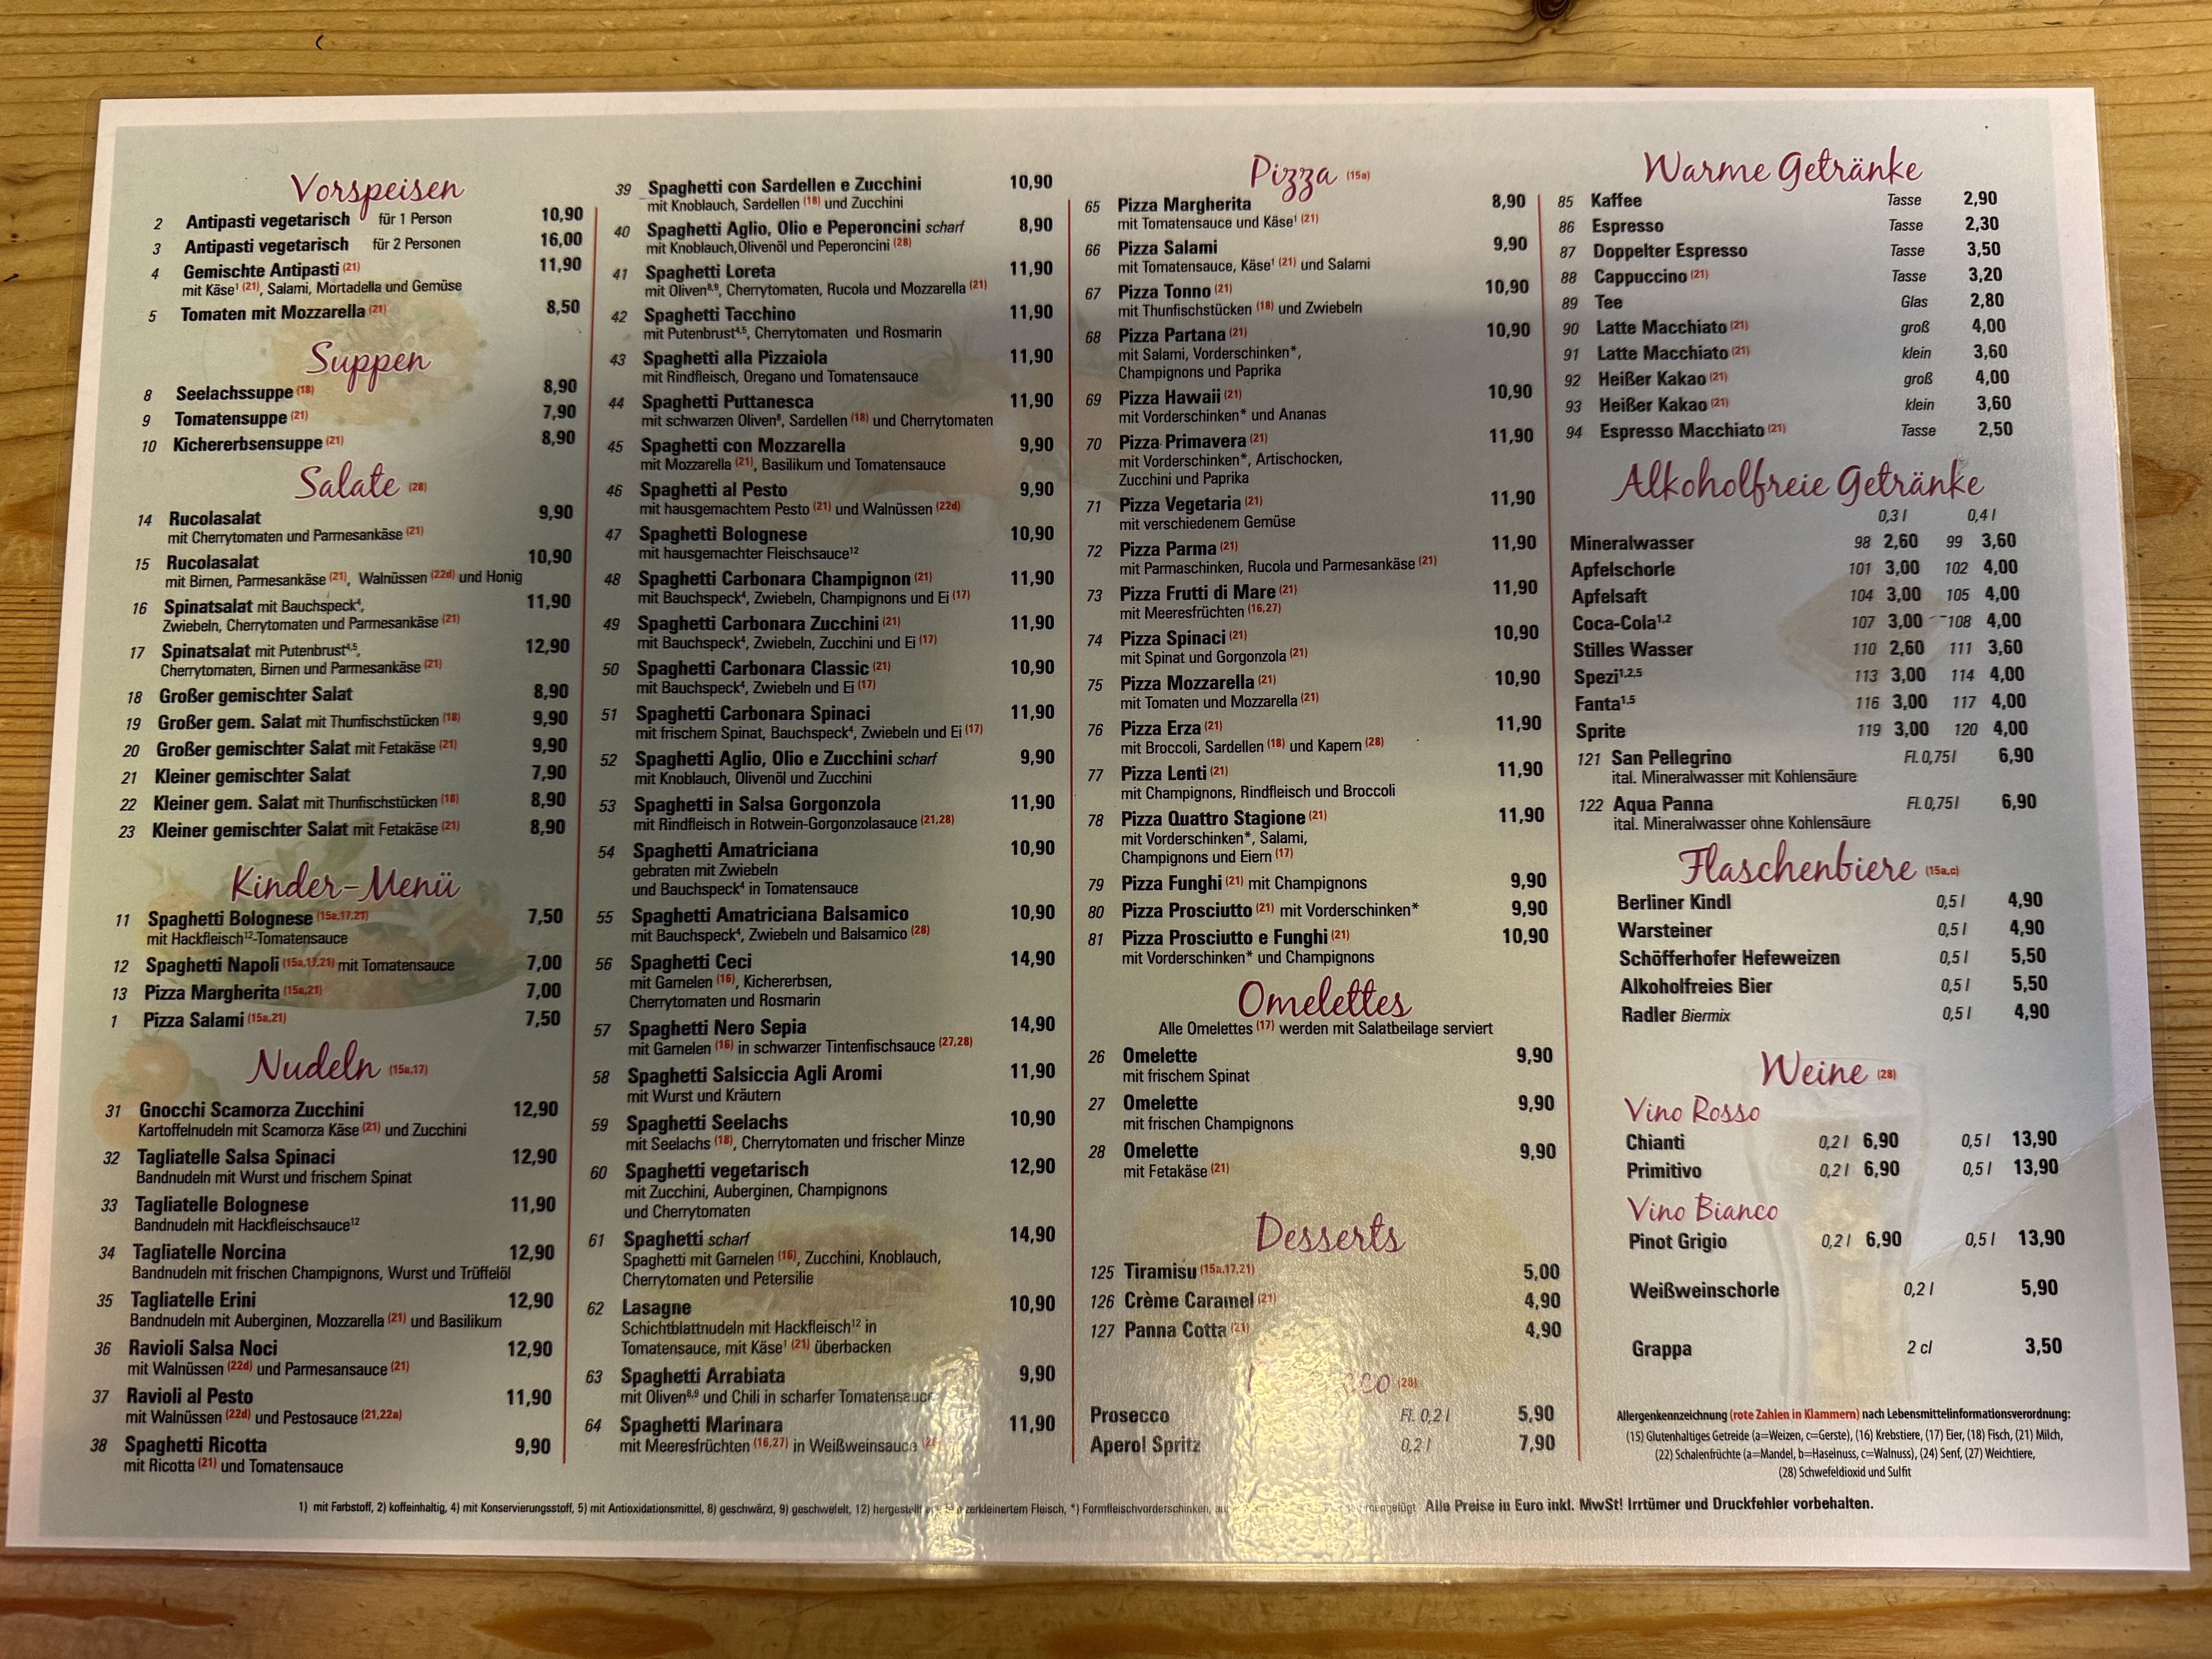 Vorspeisen
2 Antipasti vegetarisch für 1 Person 10,90
3 Antipasti vegetarisch für 2 Personen 16,00
4 Gemischte Antipasti (21) 11,90
mit Käse¹ (21), Salami, Mortadella und Gemüse
5 Tomaten mit Mozzarella (21) 8,50
Suppen
8 Seelachssuppe (18) 8,90
9 Tomatensuppe (21) 7,90
10 Kichererbsensuppe (21) 8,90
Salate (28)
14 Rucolasalat 9,90
mit Cherrytomaten und Parmesankäse (21)
15 Rucolasalat 10,90
mit Birnen, Parmesankäse (21), Walnüssen (22d) und Honig
16 Spinatsalat mit Bauchspeck⁴, 11,90
Zwiebeln, Cherrytomaten und Parmesankäse (21)
17 Spinatsalat mit Putenbrust⁴,⁵, 12,90
Cherrytomaten, Birnen und Parmesankäse (21)
18 Großer gemischter Salat 8,90
19 Großer gem. Salat mit Thunfischstücken (18) 9,90
20 Großer gemischter Salat mit Fetakäse (21) 9,90
21 Kleiner gemischter Salat 7,90
22 Kleiner gem. Salat mit Thunfischstücken (18) 8,90
23 Kleiner gemischter Salat mit Fetakäse (21) 8,90
Kinder-Menü
11 Spaghetti Bolognese (15a,17,21) 7,50
mit Hackfleisch¹²-Tomatensauce
12 Spaghetti Napoli (15a,17,21) mit Tomatensauce 7,00
13 Pizza Margherita (15a,21) 7,00
1 Pizza Salami (15a,21) 7,50
Nudeln (15a,17)
31 Gnocchi Scamorza Zucchini 12,90
Kartoffelnudeln mit Scamorza Käse (21) und Zucchini
32 Tagliatelle Salsa Spinaci 12,90
Bandnudeln mit Wurst und frischem Spinat
33 Tagliatelle Bolognese 11,90
Bandnudeln mit Hackfleischsauce¹²
34 Tagliatelle Norcina 12,90
Bandnudeln mit frischen Champignons, Wurst und Trüffelöl
35 Tagliatelle Erini 12,90
Bandnudeln mit Auberginen, Mozzarella (21) und Basilikum
36 Ravioli Salsa Noci 12,90
mit Walnüssen (22d) und Parmesansauce (21)
37 Ravioli al Pesto 11,90
mit Walnüssen (22d) und Pestosauce (21,22a)
38 Spaghetti Ricotta 9,90
mit Ricotta (21) und Tomatensauce
39 Spaghetti con Sardellen e Zucchini 10,90
mit Knoblauch, Sardellen (18) und Zucchini
40 Spaghetti Aglio, Olio e Peperoncini scharf 8,90
mit Knoblauch,Olivenöl und Peperoncini (28)
41 Spaghetti Loreta 11,90
mit Oliven⁸,⁹, Cherrytomaten, Rucola und Mozzarella (21)
42 Spaghetti Tacchino 11,90
mit Putenbrust⁴,⁵, Cherrytomaten und Rosmarin
43 Spaghetti alla Pizzaiola 11,90
mit Rindfleisch, Oregano und Tomatensauce
44 Spaghetti Puttanesca 11,90
mit schwarzen Oliven⁸, Sardellen (18) und Cherrytomaten
45 Spaghetti con Mozzarella 9,90
mit Mozzarella (21), Basilikum und Tomatensauce
46 Spaghetti al Pesto 9,90
mit hausgemachtem Pesto (21) und Walnüssen (22d)
47 Spaghetti Bolognese 10,90
mit hausgemachter Fleischsauce¹²
48 Spaghetti Carbonara Champignon (21) 11,90
mit Bauchspeck⁴, Zwiebeln, Champignons und Ei (17)
49 Spaghetti Carbonara Zucchini (21) 11,90
mit Bauchspeck⁴, Zwiebeln, Zucchini und Ei (17)
50 Spaghetti Carbonara Classic (21) 10,90
mit Bauchspeck⁴, Zwiebeln und Ei (17)
51 Spaghetti Carbonara Spinaci 11,90
mit frischem Spinat, Bauchspeck⁴, Zwiebeln und Ei (17)
52 Spaghetti Aglio, Olio e Zucchini scharf 9,90
mit Knoblauch, Olivenöl und Zucchini
53 Spaghetti in Salsa Gorgonzola 11,90
mit Rindfleisch in Rotwein-Gorgonzolasauce (21,28)
54 Spaghetti Amatriciana 10,90
gebraten mit Zwiebeln
und Bauchspeck⁴ in Tomatensauce
55 Spaghetti Amatriciana Balsamico 10,90
mit Bauchspeck⁴, Zwiebeln und Balsamico (28)
56 Spaghetti Ceci 14,90
mit Garnelen (16), Kichererbsen,
Cherrytomaten und Rosmarin
57 Spaghetti Nero Sepia 14,90
mit Garnelen (16) in schwarzer Tintenfischsauce (27,28)
58 Spaghetti Salsiccia Agli Aromi 11,90
mit Wurst und Kräutern
59 Spaghetti Seelachs 10,90
mit Seelachs (18), Cherrytomaten und frischer Minze
60 Spaghetti vegetarisch 12,90
mit Zucchini, Auberginen, Champignons
und Cherrytomaten
61 Spaghetti scharf 14,90
Spaghetti mit Garnelen (16), Zucchini, Knoblauch,
Cherrytomaten und Petersilie
62 Lasagne 10,90
Schichtblattnudeln mit Hackfleisch¹² in
Tomatensauce, mit Käse¹ (21) überbacken
63 Spaghetti Arrabiata 9,90
mit Oliven⁸,⁹ und Chili in scharfer Tomatensauce
64 Spaghetti Marinara 11,90
mit Meeresfrüchten (16,27) in Weißweinsauce
Pizza (15a)
65 Pizza Margherita 8,90
mit Tomatensauce und Käse¹ (21)
66 Pizza Salami 9,90
mit Tomatensauce, Käse¹ (21) und Salami
67 Pizza Tonno (21) 10,90
mit Thunfischstücken (18) und Zwiebeln
68 Pizza Partana (21) 10,90
mit Salami, Vorderschinken*,
Champignons und Paprika
69 Pizza Hawaii (21) 10,90
mit Vorderschinken* und Ananas
70 Pizza Primavera (21) 11,90
mit Vorderschinken*, Artischocken,
Zucchini und Paprika
71 Pizza Vegetaria (21) 11,90
mit verschiedenem Gemüse
72 Pizza Parma (21) 11,90
mit Parmaschinken, Rucola und Parmesankäse (21)
73 Pizza Frutti di Mare (21) 11,90
mit Meeresfrüchten (16,27)
74 Pizza Spinaci (21) 10,90
mit Spinat und Gorgonzola (21)
75 Pizza Mozzarella (21) 10,90
mit Tomaten und Mozzarella (21)
76 Pizza Erza (21) 11,90
mit Broccoli, Sardellen (18) und Kapern (28)
77 Pizza Lenti (21) 11,90
mit Champignons, Rindfleisch und Broccoli
78 Pizza Quattro Stagione (21) 11,90
mit Vorderschinken*, Salami,
Champignons und Eiern (17)
79 Pizza Funghi (21) mit Champignons 9,90
80 Pizza Prosciutto (21) mit Vorderschinken* 9,90
81 Pizza Prosciutto e Funghi (21) 10,90
mit Vorderschinken* und Champignons
Omelettes
Alle Omelettes (17) werden mit Salatbeilage serviert
26 Omelette 9,90
mit frischem Spinat
27 Omelette 9,90
mit frischen Champignons
28 Omelette 9,90
mit Fetakäse (21)
Desserts
125 Tiramisu (15a,17,21) 5,00
126 Crème Caramel (21) 4,90
127 Panna Cotta (21) 4,90
(28)
Prosecco Fl. 0,2 l 5,90
Aperol Spritz 0,2 l 7,90
Warme Getränke
85 Kaffee Tasse 2,90
86 Espresso Tasse 2,30
87 Doppelter Espresso Tasse 3,50
88 Cappuccino (21) Tasse 3,20
89 Tee Glas 2,80
90 Latte Macchiato (21) groß 4,00
91 Latte Macchiato (21) klein 3,60
92 Heißer Kakao (21) groß 4,00
93 Heißer Kakao (21) klein 3,60
94 Espresso Macchiato (21) Tasse 2,50
Alkoholfreie Getränke
0,3 l 0,4 l
Mineralwasser 98 2,60 99 3,60
Apfelschorle 101 3,00 102 4,00
Apfelsaft 104 3,00 105 4,00
Coca-Cola¹,² 107 3,00 108 4,00
Stilles Wasser 110 2,60 111 3,60
Spezi¹,²,⁵ 113 3,00 114 4,00
Fanta¹,⁵ 116 3,00 117 4,00
Sprite 119 3,00 120 4,00
121 San Pellegrino Fl. 0,75 l 6,90
ital. Mineralwasser mit Kohlensäure
122 Aqua Panna Fl. 0,75 l 6,90
ital. Mineralwasser ohne Kohlensäure
Flaschenbiere (15a,c)
Berliner Kindl 0,5 l 4,90
Warsteiner 0,5 l 4,90
Schöfferhofer Hefeweizen 0,5 l 5,50
Alkoholfreies Bier 0,5 l 5,50
Radler Biermix 0,5 l 4,90
Weine (28)
Vino Rosso
Chianti 0,2 l 6,90 0,5 l 13,90
Primitivo 0,2 l 6,90 0,5 l 13,90
Vino Bianco
Pinot Grigio 0,2 l 6,90 0,5 l 13,90
Weißweinschorle 0,2 l 5,90
Grappa 2 cl 3,50
Allergenkennzeichnung (rote Zahlen in Klammern) nach Lebensmittelinformationsverordnung:
(15) Glutenhaltiges Getreide (a=Weizen, c=Gerste), (16) Krebstiere, (17) Eier, (18) Fisch, (21) Milch,
(22) Schalenfrüchte (a=Mandel, b=Haselnuss, c=Walnuss), (24) Senf, (27) Weichtiere,
(28) Schwefeldioxid und Sulfit
1) mit Farbstoff, 2) koffeinhaltig, 4) mit Konservierungsstoff, 5) mit Antioxidationsmittel, 8) geschwärzt, 9) geschwefelt, 12) hergestellt zerkleinertem Fleisch, *) Formfleischvorderschinken, Alle Preise in Euro inkl. MwSt! Irrtümer und Druckfehler vorbehalten.